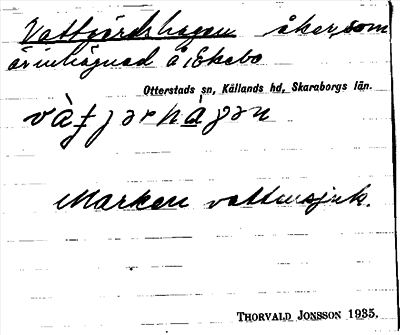 Vattgärdshagen åker, som
är inhägnad å Ekebo
Otterstads sn, Kållands hd, Skaraborgs län.
Marken vattensjuk.
THORVALD JONSSON 1935.